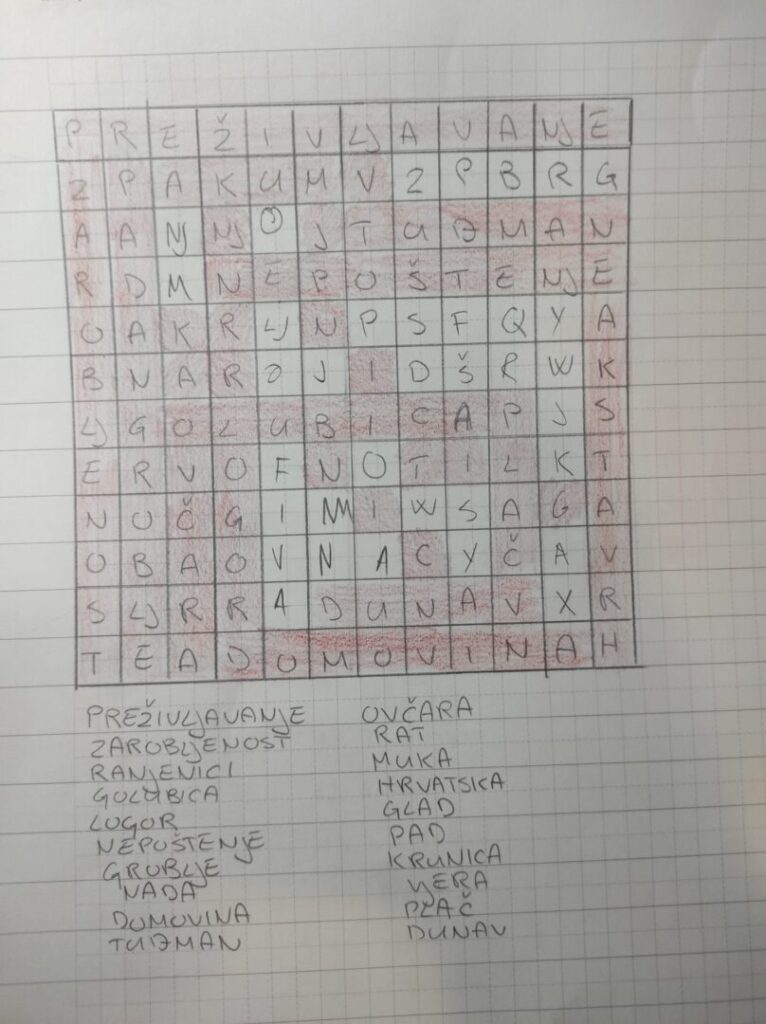 P R E Ž I V LJ A V A NJ E
Z P A K U M V Z P B R G
A A NJ NJ O J T U Đ M A N
R D M N E P O Š T E NJ E
O A K R LJ N P S F Q Y A
B N A R O J I D Š R W K
LJ G O L U B I C A P J S
E R V O F N O T I L K T
N U Č G I M I W S A G A
O B A O V N A C Y Č A V
S LJ R R A D U N A V X R
T E A D O M O V I N A H
PREŽIVLJAVANJE OVČARA
ZAROBLJENOST RAT
RANJENICI MUKA
GOLUBICA HRVATSKA
LOGOR GLAD
NEPOŠTENJE PAD
GROBLJE KRUNICA
NADA VJERA
DOMOVINA PLAČ
TUĐMAN DUNAV